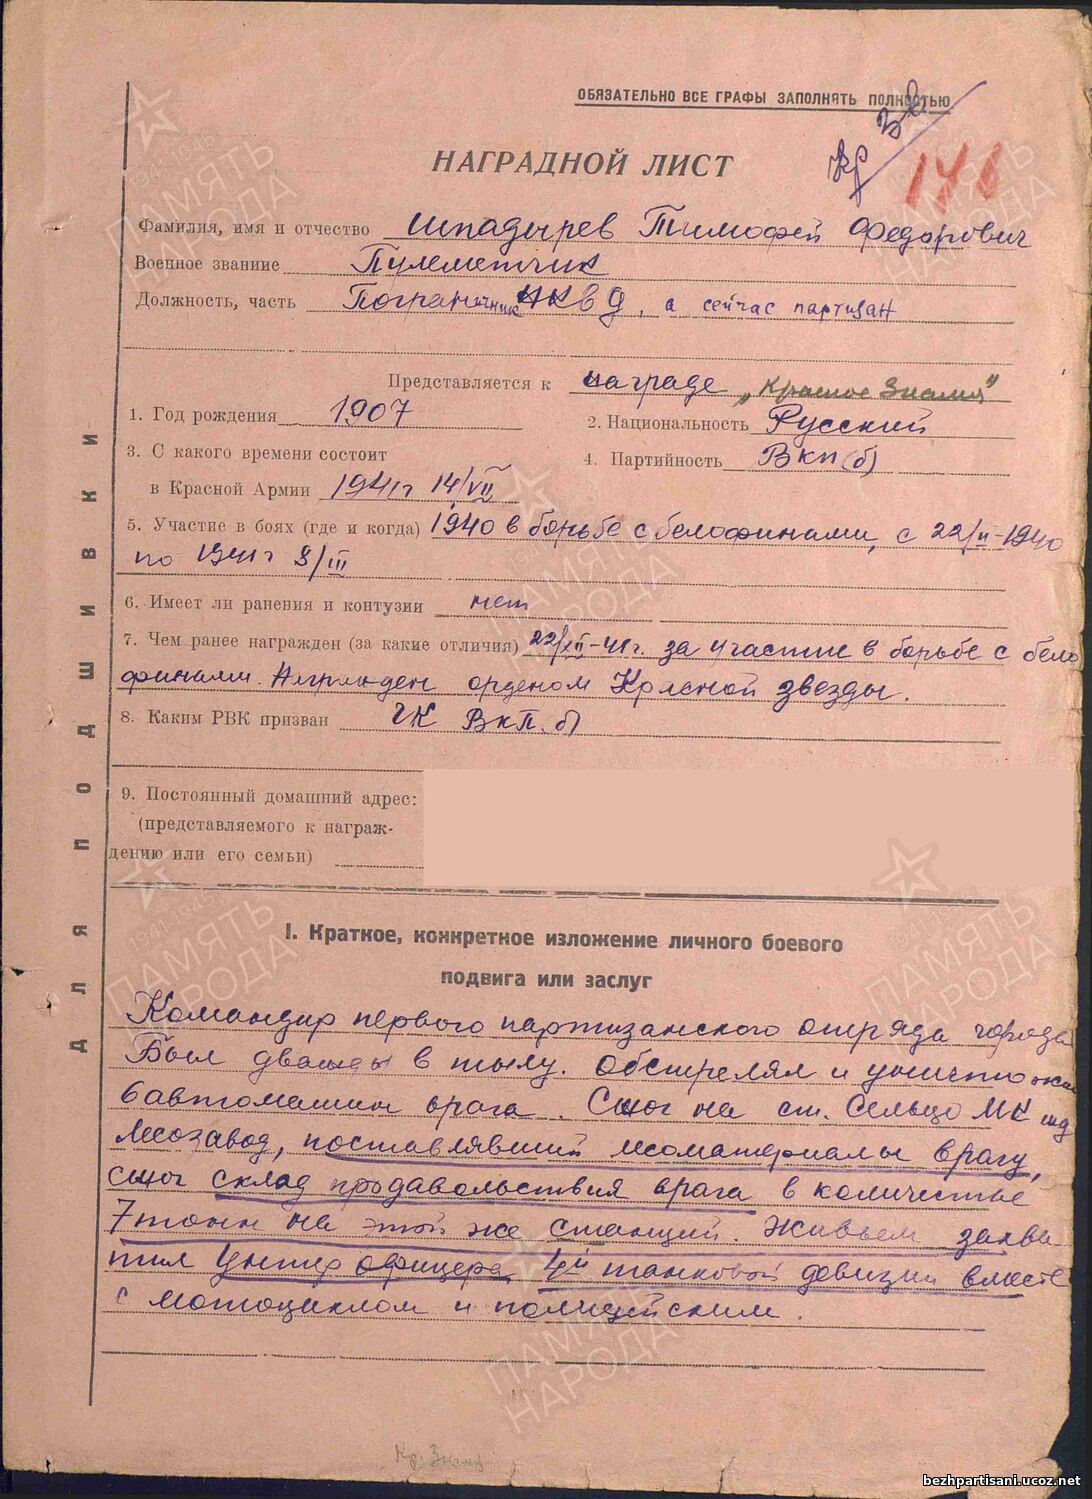 ОБЯЗАТЕЛЬНО ВСЕ ГРАФЫ ЗАПОЛНЯТЬ ПОЛНОСТЬЮ
Кр Зв
146
НАГРАДНОЙ ЛИСТ
Фамилия, имя и отчество Шпадырев Тимофей Федорович
Военное звание Пулеметчик
Должность, часть Пограничник НКВД, а сейчас партизан
Представляется к награде „Красное Знамя"
1. Год рождения 1907
2. Национальность Русский
3. С какого времени состоит
4. Партийность ВКП(б)
в Красной Армии 1941г 14/VII
5. Участие в боях (где и когда) 1940 в борьбе с белофинами, с 22/II-1940
по 1941г 9/III
6. Имеет ли ранения и контузии нет
7. Чем ранее награжден (за какие отличия) 22/XII-41г. за участие в борьбе с бело
финами. Награжден орденом Красной звезды.
8. Каким РВК призван ГК ВКП.б)
9. Постоянный домашний адрес:
(представляемого к награж-
дению или его семьи)
ДЛЯ ПОДШИВКИ
I. Краткое, конкретное изложение личного боевого
подвига или заслуг
Командир первого партизанского отряда города
Был дважды в тылу. Обстрелял и уничтожил
6 автомашин врага. Сжог на ст. Сельцо МК
лесозавод, поставлявший лесоматериалы врагу,
сжог склад продавольствия врага в количестве
7 тонн на этой же станции. Живьем захва-
тил Унтер офицера 4й танковой девизии вместе
с мотоциклом и полицейским.
Кр. Знамя
ПАМЯТЬ НАРОДА
1941-1945
bezhpartisani.ucoz.net